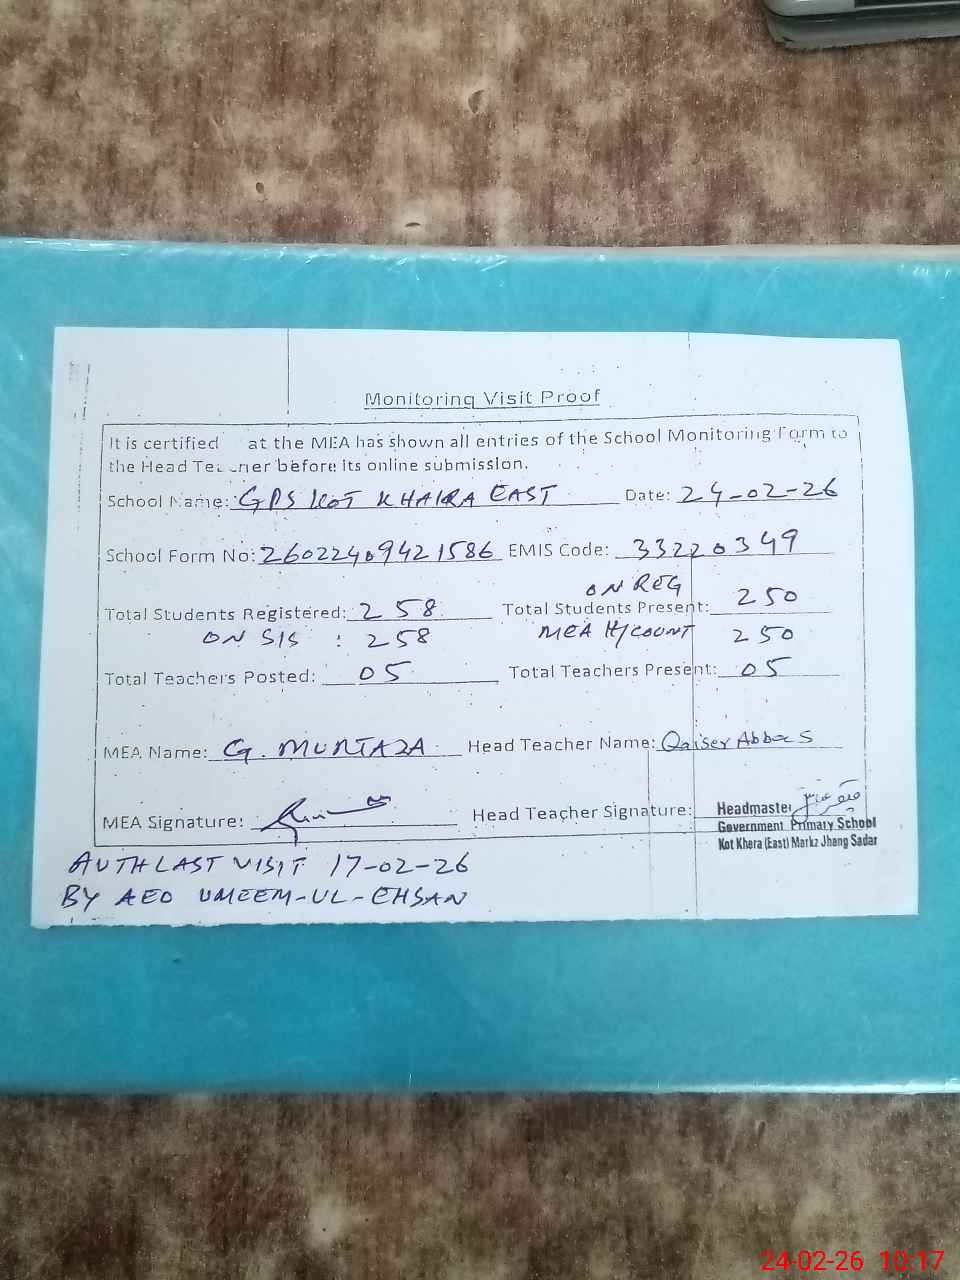 Monitoring Visit Proof
It is certified at the MEA has shown all entries of the School Monitoring Form to
the Head Teacher before its online submission.
School Name: GPS KOT KHAKRA EAST Date: 24-02-26
School Form No: 26022409421586 EMIS Code: 33220349
ON REG
Total Students Registered: 258 Total Students Present: 250
ON SIS : 258 MEA H/COUNT 250
Total Teachers Posted: 05 Total Teachers Present: 05
MEA Name: G. MURTAZA Head Teacher Name: Qaiser Abbas
MEA Signature: Head Teacher Signature:
Headmaster
Government Primary School
Kot Khera (East) Markz Jhang Sadar
AUTH LAST VISIT 17-02-26
BY AEO UMEEM-UL-EHSAN
24-02-26 10:17